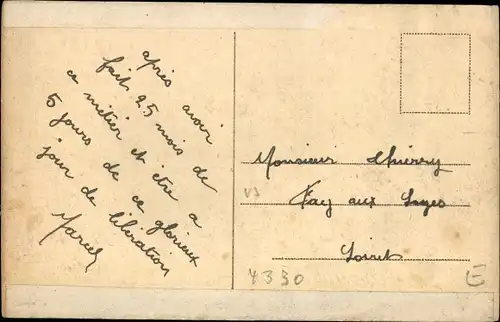 après avoir
fait 25 mois de
ce métier et être a
5 jours de ce glorieux
jour de libération
Marcel
Monsieur Thierry
Fay aux Loges
Loiret
V3
4330
E